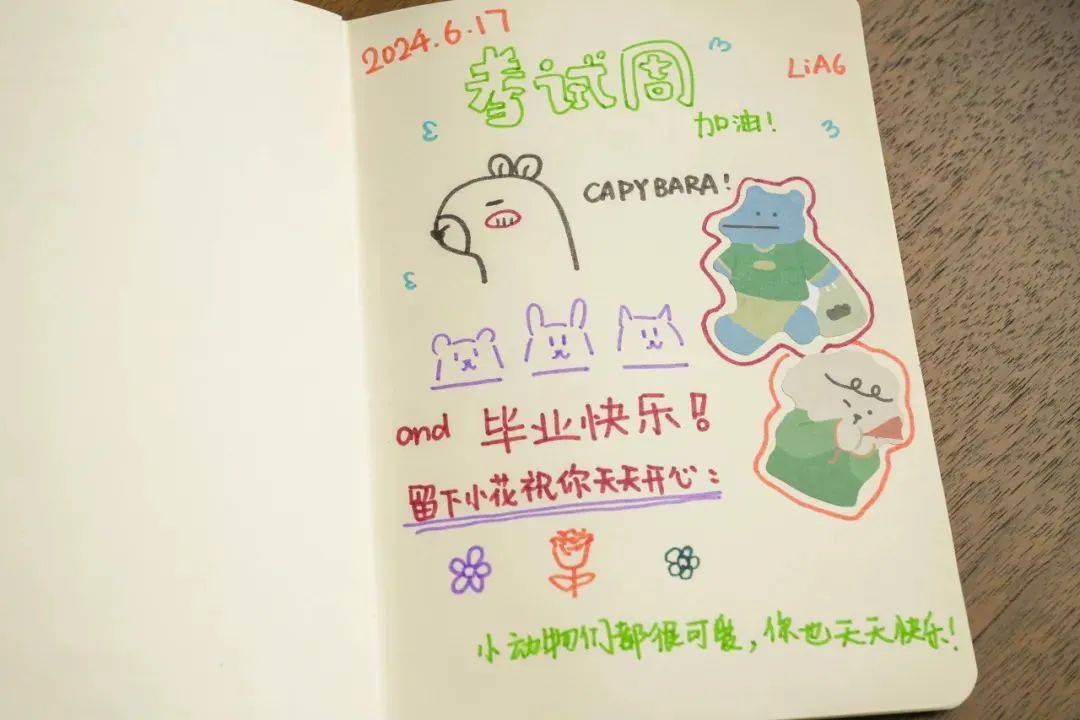 2024.6.17
考试周
LiAG
加油!
CAPYBARA!
and 毕业快乐!
留下小花祝你天天开心:
小动物们都很可爱,你也天天快乐!